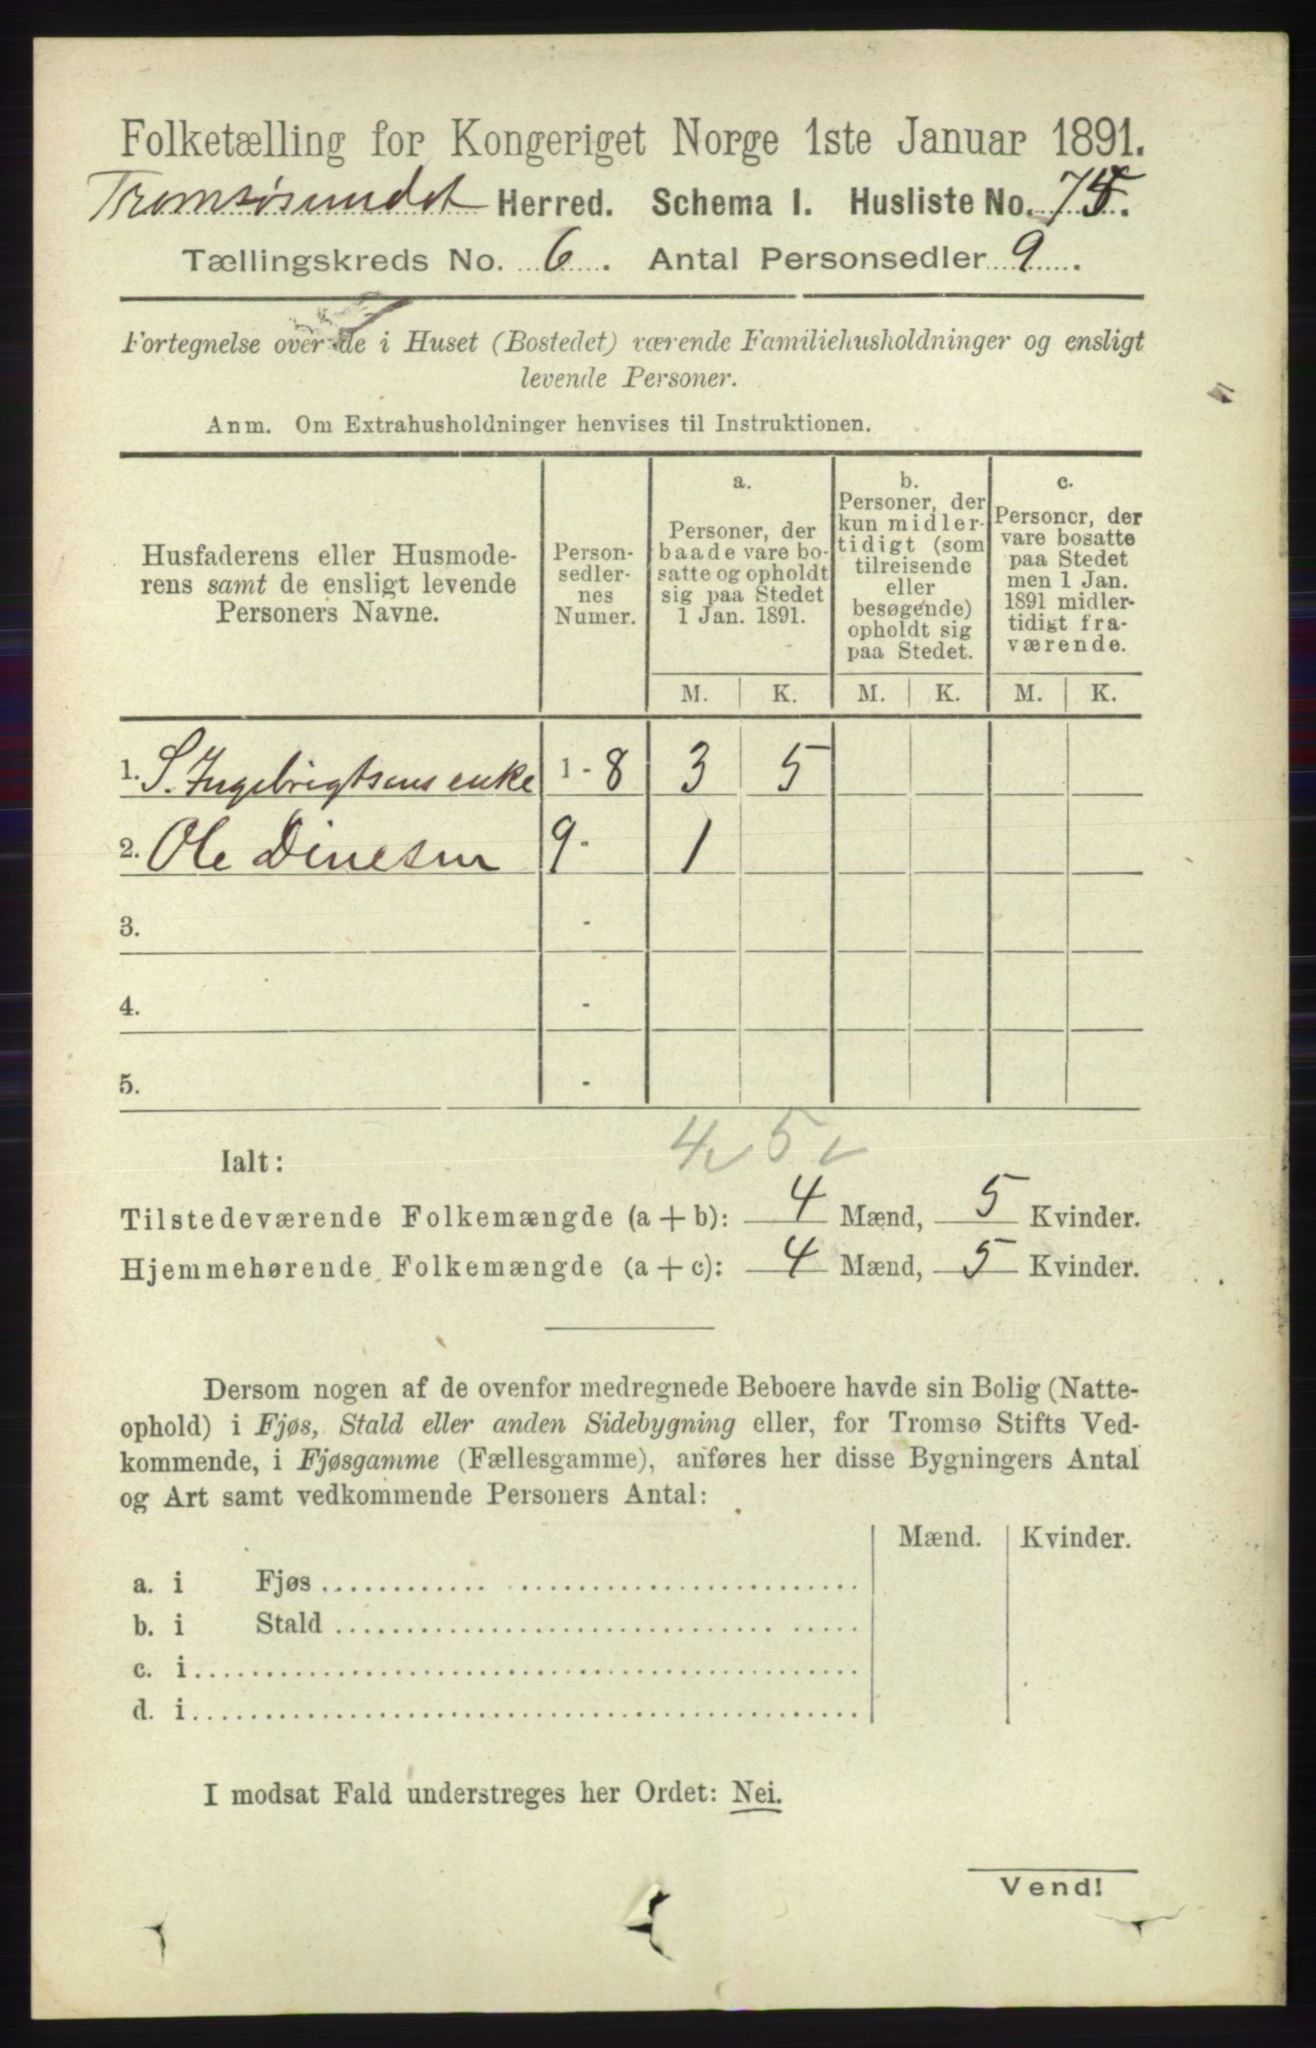 Folketælling for Kongeriget Norge 1ste Januar 1891.
Tromsøsundet Herred. Schema I. Husliste No. 75.
Tællingskreds No. 6. Antal Personsedler 9.
Fortegnelse over de i Huset (Bostedet) værende Familiehusholdninger og ensligt
levende Personer.
Anm. Om Extrahusholdninger henvises til Instruktionen.
Husfaderens eller Husmode-
rens samt de ensligt levende
Personers Navne.
Person-
sedler-
nes
Numer.
a.
Personer, der
baade vare bo-
satte og opholdt
sig paa Stedet
1 Jan. 1891.
b.
Personer, der
kun midler-
tidigt (som
tilreisende
eller
besøgende)
opholdt sig
paa Stedet.
c.
Personer, der
vare bosatte
paa Stedet
men 1 Jan.
1891 midler-
tidigt fra-
værende.
M. K. M. K. M. K.
1. S. Ingebrigtsens enke 1 - 8 3 5
2. Ole Dinesen 9 - 1
3. -
4. -
5. -
4 5
Ialt:
Tilstedeværende Folkemængde (a + b): 4 Mænd, 5 Kvinder.
Hjemmehørende Folkemængde (a + c): 4 Mænd, 5 Kvinder.
Dersom nogen af de ovenfor medregnede Beboere havde sin Bolig (Natte-
ophold) i Fjøs, Stald eller anden Sidebygning eller, for Tromsø Stifts Ved-
kommende, i Fjøsgamme (Fællesgamme), anføres her disse Bygningers Antal
og Art samt vedkommende Personers Antal:
Mænd. Kvinder.
a. i Fjøs
b. i Stald
c. i
d. i
I modsat Fald understreges her Ordet: Nei.
Vend!